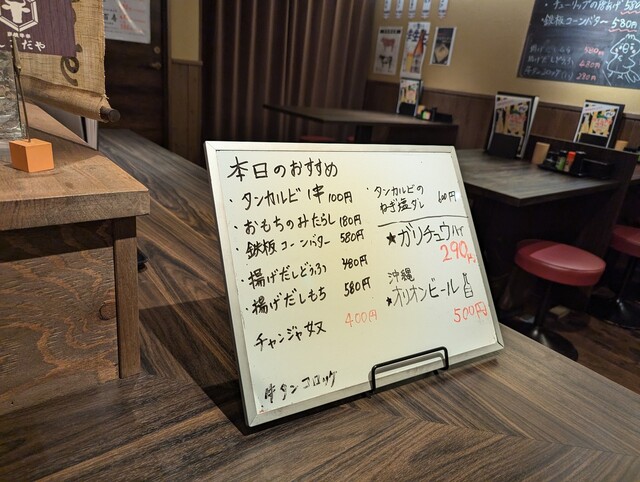 本日のおすすめ
・タンカルビ 1本 100円
・おもちのみたらし 180円
・鉄板コーンバター 580円
・揚げだしどうふ 480円
・揚げだしもち 580円
チャンジャ奴 400円
牛タンコロッケ
・タンカルビの
ねぎ塩ダレ 100円
★ガリチュウハイ
290円
沖縄
★オリオンビール
500円
鉄板コーンバター 580円
480円
290円